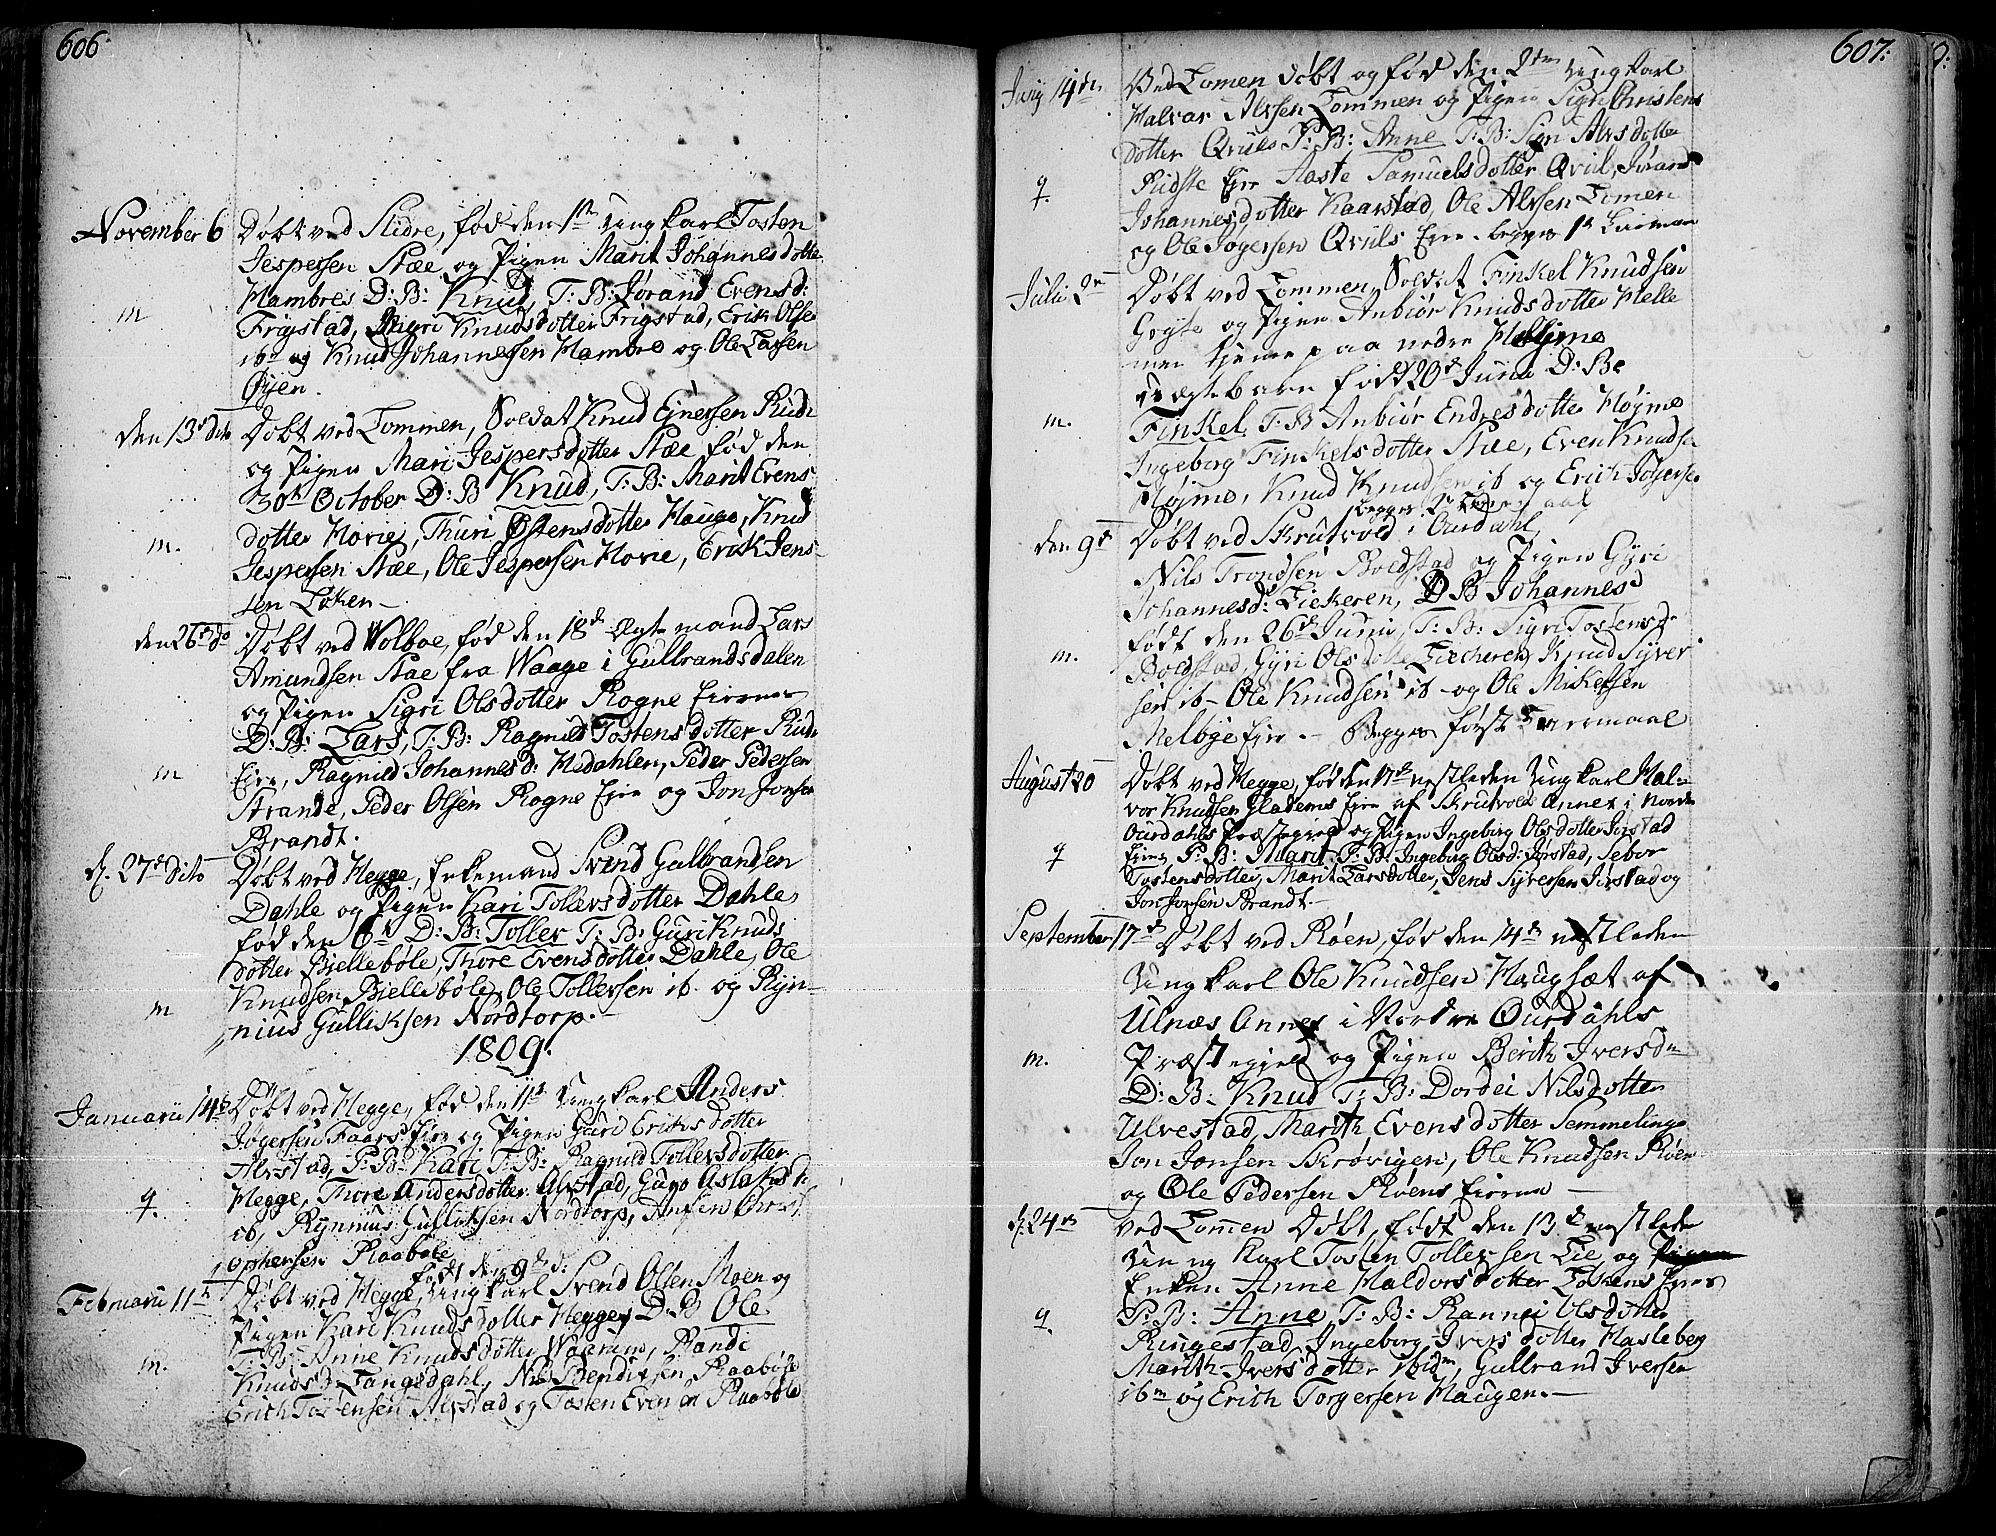 606
November 6 Døbt ved Slidre, fød den 1ste Ungkarl Tosten
Jespersen Stae og Pigen Marit Johannesdotter
Hambres D: B: Knud, T: B: Jørand Evensd:
m
Frigstad, Sigri Knudsdotter Frigstad, Erik Olsen
ib og Knud Johannessen Hambre og Ole Larsen
Øyen.
den 13de dito Døbt ved Lommen, Soldat Knud Ejnersen Rudi
og Pigen Mari Jespersdotter Stae fød den
30te October D: B Knud, T: B: Marit Evens
m. dotter Horie, Thuri Østensdotter Hauge, Knud
Jespersen Stae, Ole Jespersen Horie, Erik Jens-
sen Løken -
den 26de do Døbt ved Wolboe, fød den 18de Ægtemand Lars
Amundsen Stae fra Waage i Gulbrandsdalen
og Pigen Sigri Olsdotter Rogne Eiernes
D: B: Lars, T: B: Ragnild Tostensdotter Rudi
m Eie, Ragnild Johannesd: Hedahlen, Peder Pedersen
Strande, Peder Olsen Rogne Eje og Jon Jonsen
Brandt.
d. 27de dito Døbt ved Hegge, Enkemand Svend Gulbrandsen
Dahle og Pigen Kari Tollersdotter Dahle,
fød den 6te D: B: Toller T: B: Guri Knuds
dotter Bjellebøle, Thore Evensdotter Dahle, Ole
m Knudsen Bjellebøle, Ole Tollersen ib. og Ryn-
nius Gulliksen Nordtorp.-
1809.
Januarii 14de Døbt ved Hegge, fød den 11te Ungkarl Anders
Jøgersen Faars Eje og Pigen Guri Erichsdotter
Alvstad, P: B: Kari T: B: Ragnild Tollersdotter
q. Hegge, Thore Andersdotter Alvstad, Guro Aslaksd.
ib, Rynnius Gulliksen Nordtorp, Anfin Christ
ophersen Raabøle
født den 9de d.
Februarii 11te Døbt ved Hegge, Ungkarl Svend Olsen Moen og
Pigen Kari Knudsdotter Hegge, D: B Ole
T: B: Anne Knudsdotter Waarum, Randi
m. Knudsd. Langedahl, Nils Bendixsen, Raabøle
Erich Tostensen Alvstad og Tosten Evensen Raabøle
607.
Junij 14de Ved Lomen døbt og fød den 2den Ungkarl
Halvor Alvsen Lommen og Pigen Sigri Christens
dotter Qvils P: B: Anne T: B: Sigri Alvsdotter
q. Ridste Eje Aaste Samuelsdotter Qvil, Jørand
Johannesdotter Kaarstad, Ole Alvsen Lomen
og Ole Jøgersen Qvils Eje. begges 1te Leiermaal
Julii 2den Døbt ved Lommen, Soldat Finkel Knudsen
Gryte og Pigen Anbiør Knudsdotter Helle
men tjener paa nedre Høyme
Uægte barn født 20de Junii D: B:
m. Finkel T: B Anbiør Endresdotter Høyme
Ingeborg Finkelsdotter Stae, Even Knudsen
Høyme, Knud Knudsen ib og Erich Jøgersen
begges Leiermaal
den 9de Døbt ved Skrutvold i Ourdahl
Nils Trondsen Boldstad og Pigen Gyri
Johannesd: Liekeren, D: B Johannes
født den 26de Junii, T: B: Sigri Tostensd.
m. Boldstad, Gyri Olsdotter Liecheren, Knud Syver
sen ib - Ole Knudsen ib - og Ole Mikelsen
Melbye Eje. - Begges første Leiermaal
August 20 Døbt ved Hegge, fød den 17de næstleden Ungkarl Hal-
vor Knudsen Gladems Eje af Skrutvold Annex i Nordre
Ourdahls Præstegield og Pigen Ingeborg Olsdotter Jørstad
q Eje, P: B: Marit, T: B: Ingeborg Olsd: Jørstad, Sebor
Tostensdotter, Marit Larsdotter, Jens Syversen Jørstad og
Jon Jonsen Brandt.-
September 17de Døbt ved Røen, fød den 14de næstleden
Ungkarl Ole Knudsen Haugsæt af
Ulnæs Annex i Nordre Ourdahls
m. Præstegield og Pigen Berith Iversd.
D: B. Knud T: B: Dordei Nilsdotter
Ulvestad, Marith Evensdotter Semmelinge
Jon Jonsen Skrøvigen, Ole Knudsen Røen
og Ole Pedersen Røens Eierne -
d. 24de ved Lommen Døbt, født den 13de næstleden
Ungkarl Tosten Tollevsen Lie og Pigen
Enken Anne Haldorsdotter Løkens Eje
q. P: B: Anne, T: B: Rannei Olsdotter
Ringestad, Ingeborg Iversdotter Hasleberg
Marith Iversdotter ibidm, Gullrand Iversen
ibm og Erich Torgersen Haugen.-